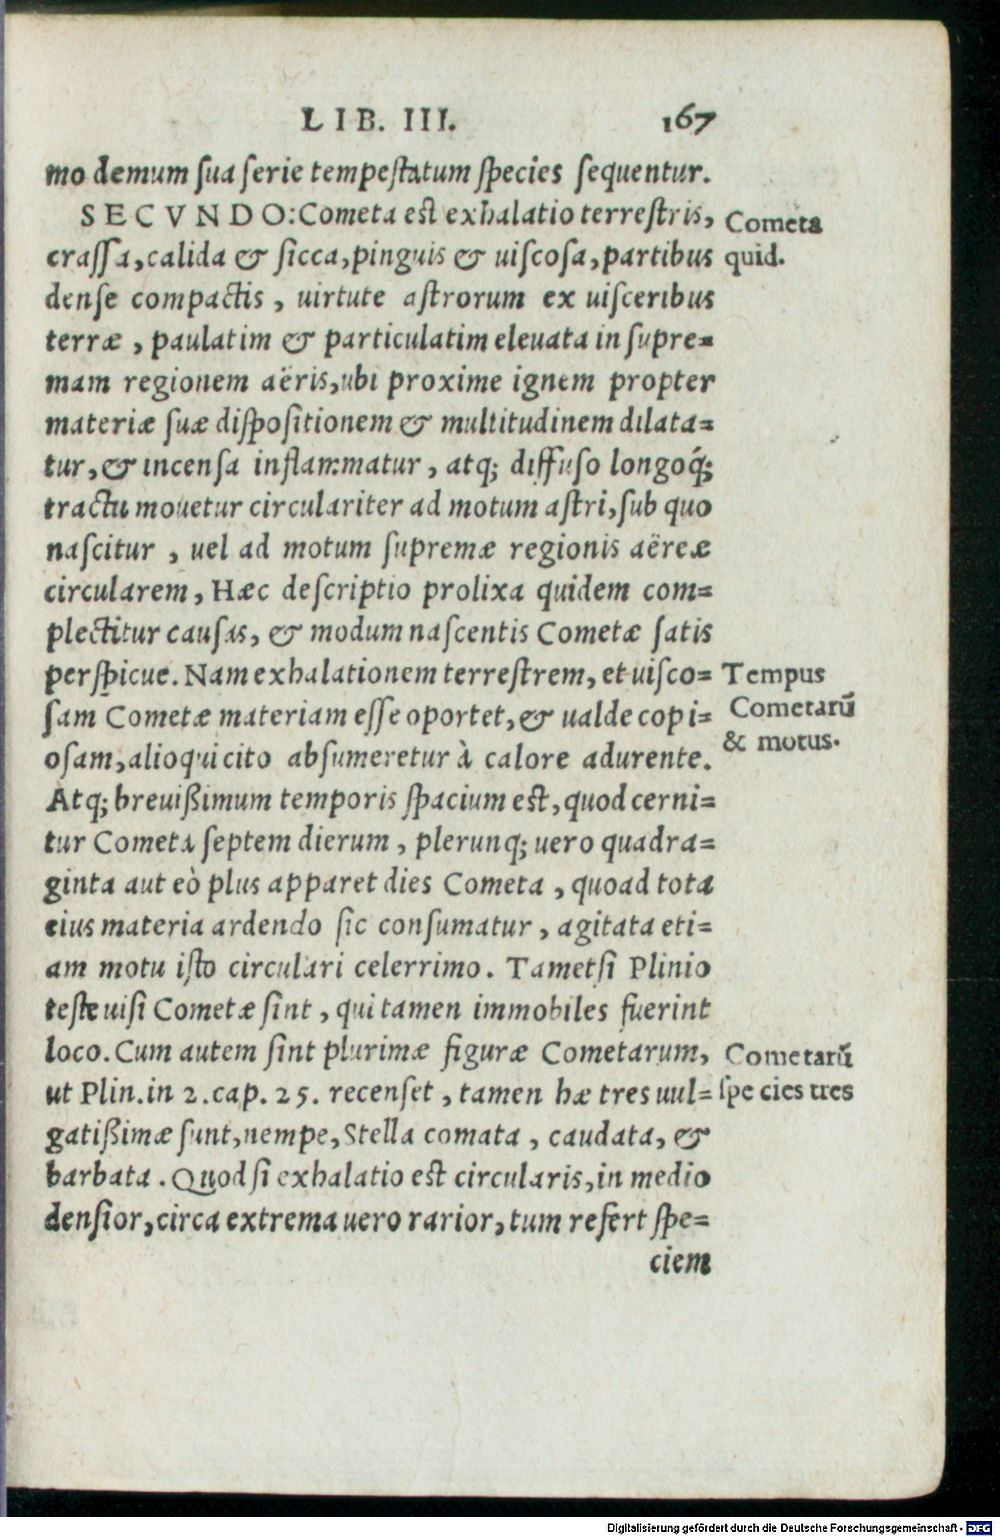 LIB. III. 167
mo demum sua serie tempestatum species sequentur.
SECVNDO: Cometa est exhalatio terrestris,
crassa, calida & sicca, pinguis & uiscosa, partibus
dense compactis, uirtute astrorum ex uisceribus
terræ, paulatim & particulatim eleuata in supre=
mam regionem aëris, ubi proxime ignem propter
materiæ suæ dispositionem & multitudinem dilata=
tur, & incensa inflammatur, atq; diffuso longoq́;
tractu mouetur circulariter ad motum astri, sub quo
nascitur, uel ad motum supremæ regionis aëreæ
circularem, Hæc descriptio prolixa quidem com=
plectitur causas, & modum nascentis Cometæ satis
perspicue. Nam exhalationem terrestrem, et uisco=
sam Cometæ materiam esse oportet, & ualde copi=
osam, alioqui cito absumeretur à calore adurente.
Atq; breuißimum temporis spacium est, quod cerni=
tur Cometa septem dierum, plerunq; uero quadra=
ginta aut eò plus apparet dies Cometa, quoad tota
eius materia ardendo sic consumatur, agitata eti=
am motu isto circulari celerrimo. Tametsi Plinio
teste uisi Cometæ sint, qui tamen immobiles fuerint
loco. Cum autem sint plurimæ figuræ Cometarum,
ut Plin. in 2. cap. 25. recenset, tamen hæ tres uul=
gatißimæ sunt, nempe, Stella comata, caudata, &
barbata. Quod si exhalatio est circularis, in medio
densior, circa extrema uero rarior, tum refert spe=
ciem
Cometa
quid.
Tempus
Cometarū
& motus.
Cometarū
species tres
Digitalisierung gefördert durch die Deutsche Forschungsgemeinschaft - DFG